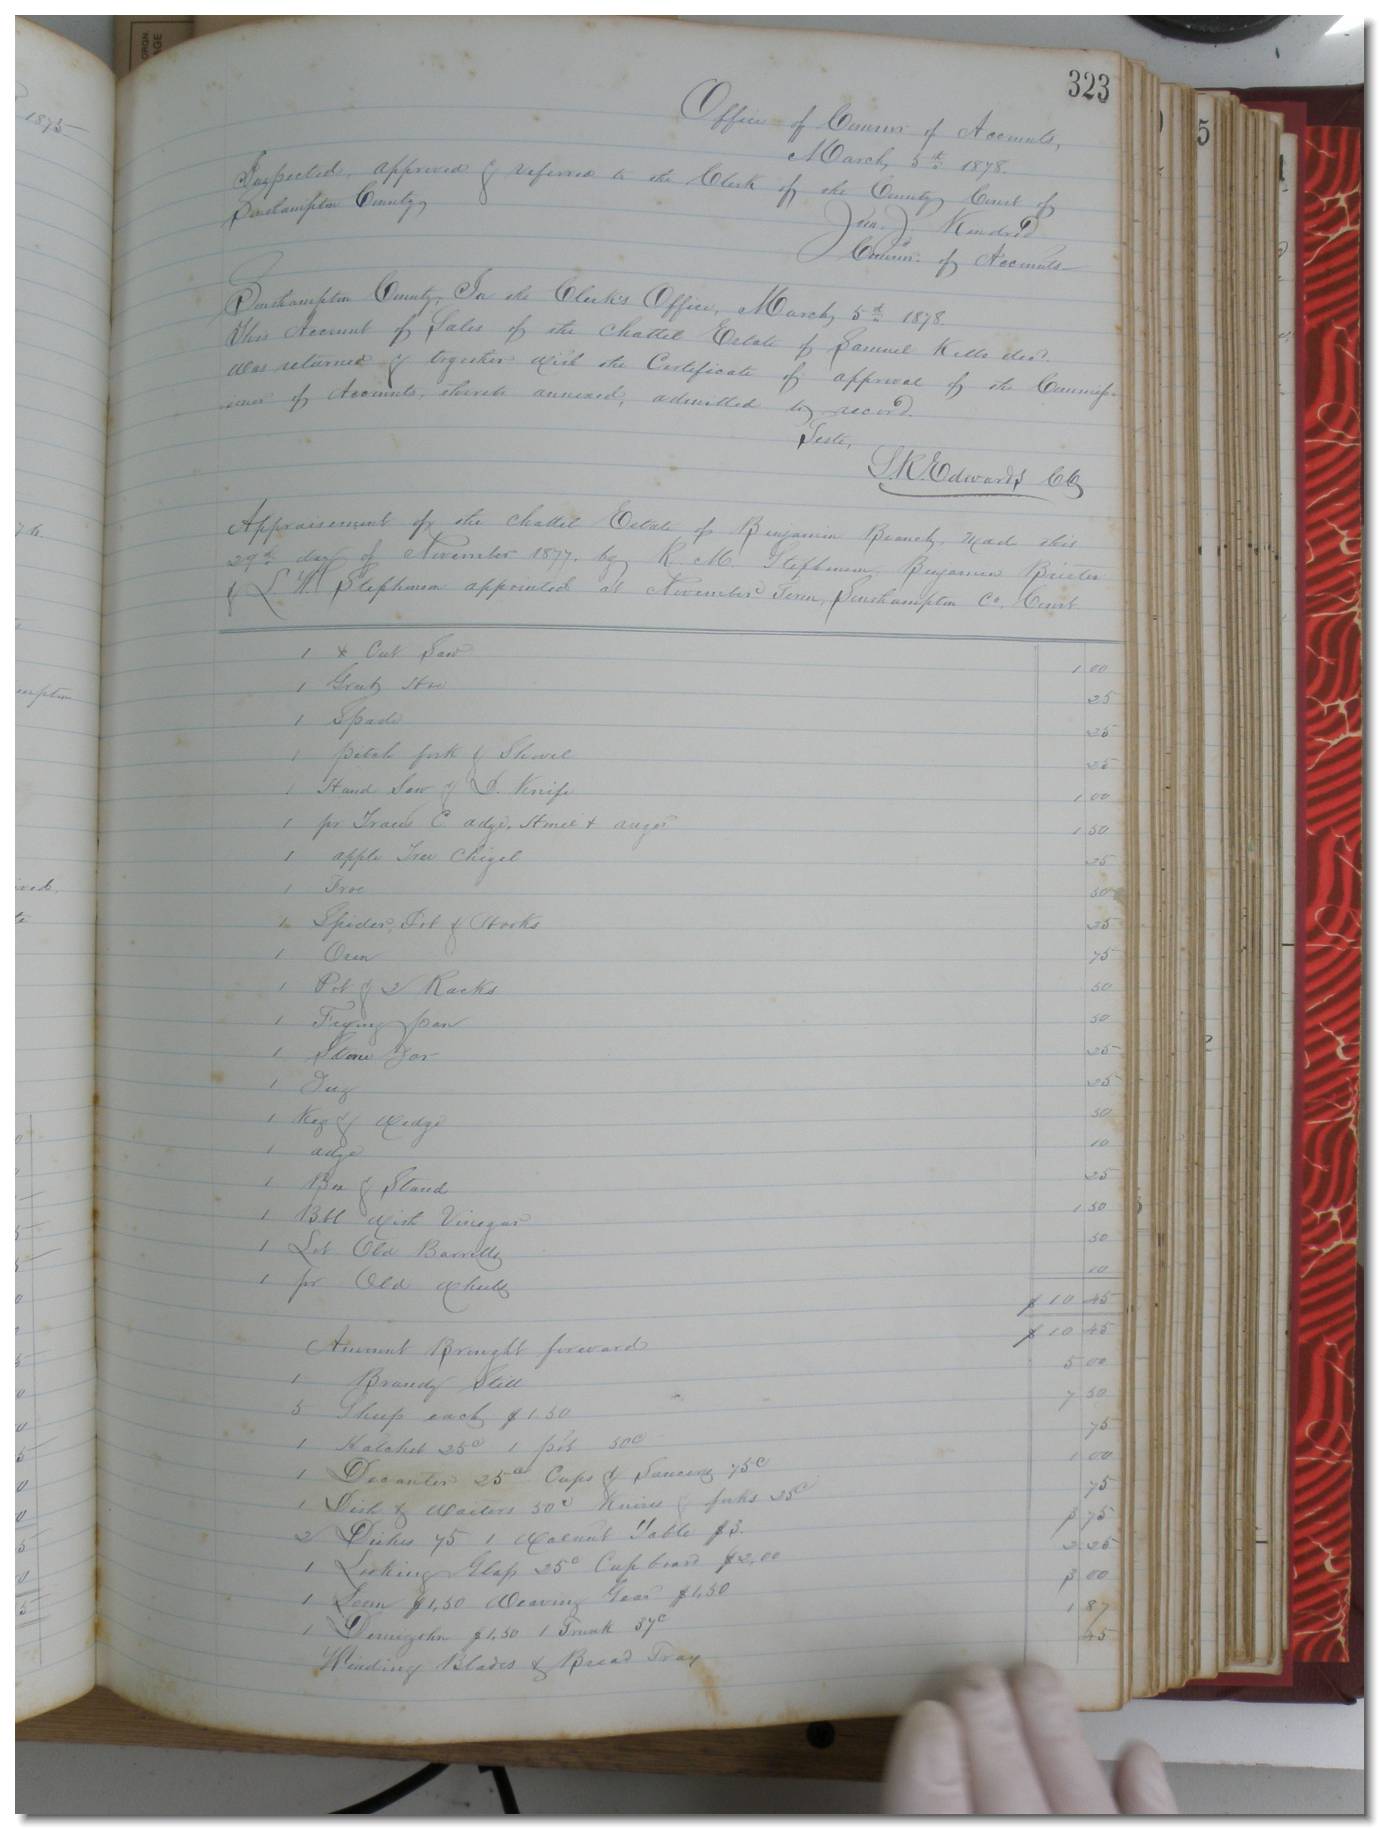 323
Office of Commr of Accounts,
March 5th 1878.
Inspected, approved & referred to the Clerk of the County Court of
Southampton County,
Jno. J. Kindred
Commr. of Accounts
Southampton County, In the Clerk's Office, March 5th 1878.
This Account of Sales of the Chattel Estate of Samuel Kello decd.
was returned & together with the Certificate of approval of the Commiss-
ioner of Accounts, thereto annexed, admitted to record.
Teste,
L.R. Edwards CC
Appraisement of the chattel Estate of Benjamin Branch, made this
29th day of November 1877. by R. M. Stephenson, Benjamin Brister
& L W Stephenson appointed at November Term, Southampton Co. Court
1 x Cut Saw 1 00
1 Grub Hoe 25
1 Spade 25
1 pitch fork & Shovel 25
1 Hand Saw & D. Knife 1 00
1 pr C adze, & auger 1 50
1 apple Tree Chizel 25
1 Froe 50
1 Spider, Pot & Hooks 25
1 Oven 75
1 Pot & 2 Racks 50
1 Frying pan 50
1 Stone Jar 25
1 Jug 25
1 Keg & Wedge 50
1 adze 10
1 Box & Stand 25
1 Bbl with Vinegar 1 50
1 Lot Old Barrells 50
1 pr Old wheels 10
$10 45
Amount Brought forward $10 45
1 Brandy Still 5 00
5 Sheep each $1.50 7 50
1 Hatchet 25c 1 pot 50c 75
1 Decanter 25c Cups & Saucers 75c 1 00
1 Dish & Waiters 50c Knives & forks 25c 75
2 Dishes 75 1 Walnut Table $3. 3 75
1 Looking Glass 25c Cupboard $2,00 2 25
1 Loom $1,50 Weaving Gear $1,50 3 00
1 Demijohn $1.50 1 Trunk 37c 1 87
Winding Blades & Bread Tray 45